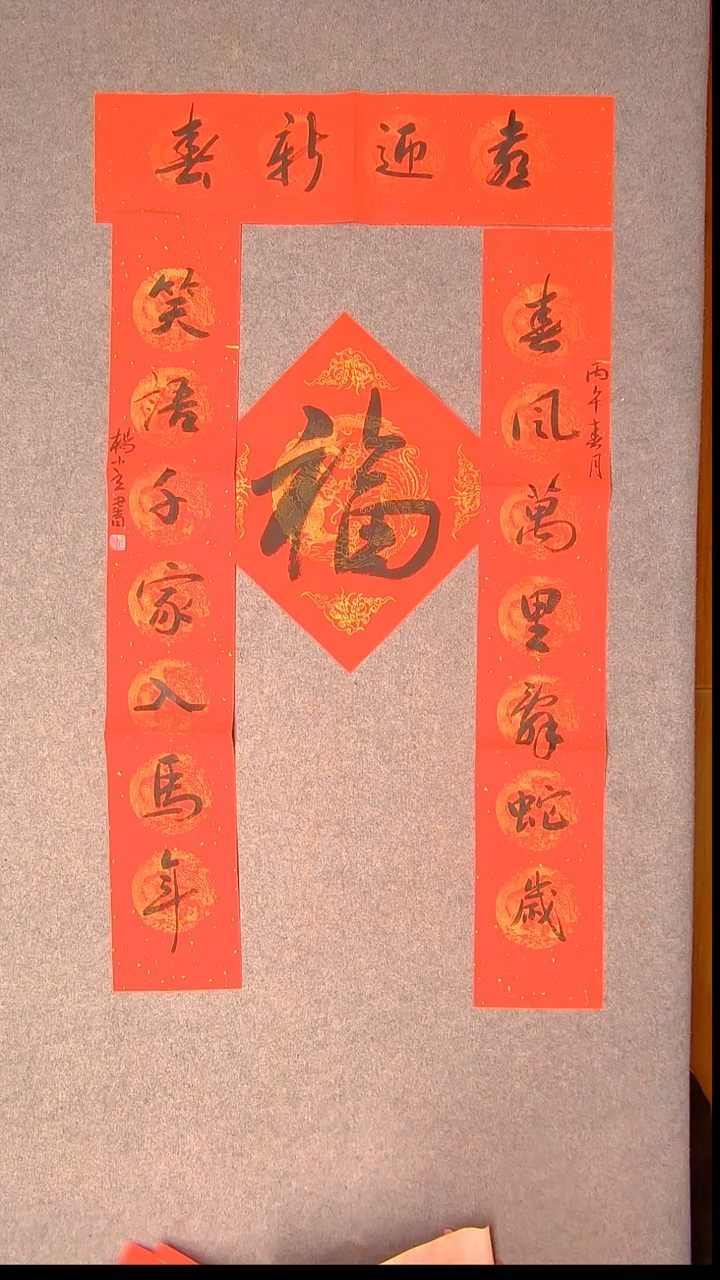 喜迎新春
春風萬里辭蛇歲
丙午春月
福
笑語千家入馬年
楊小書